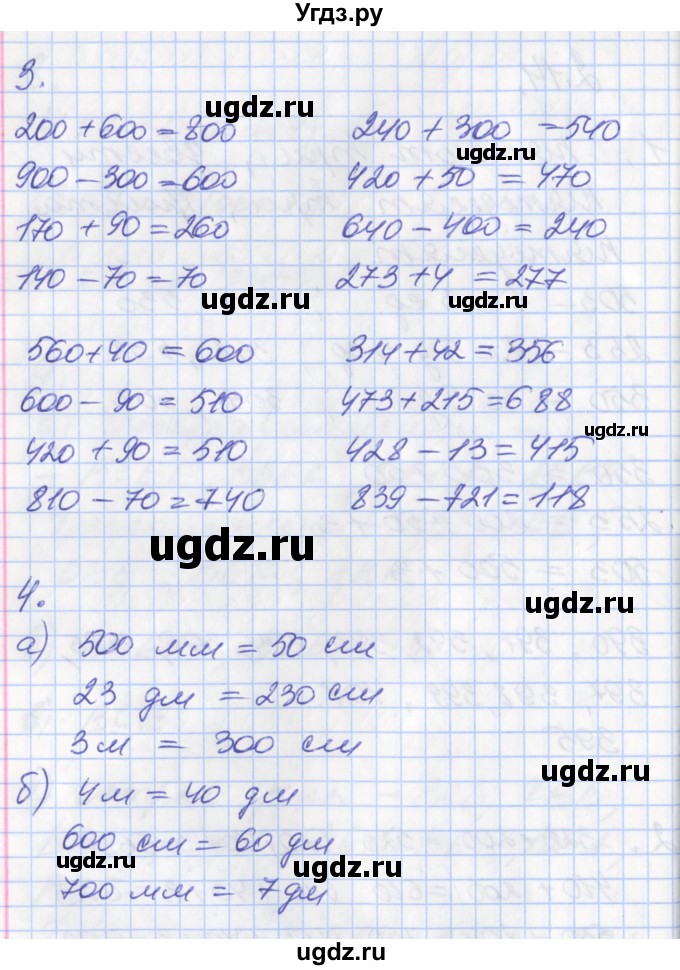 Угдз.ру
3.
200 + 600 = 800 240 + 300 = 540
900 - 300 = 600 420 + 50 = 470
170 + 90 = 260 640 - 400 = 240
140 - 70 = 70 273 + 4 = 277
560 + 40 = 600 314 + 42 = 356
600 - 90 = 510 473 + 215 = 688
420 + 90 = 510 428 - 13 = 415
810 - 70 = 740 839 - 721 = 118
4.
а) 500 мм = 50 см
23 дм = 230 см
3м = 300 см
б) 4м = 40 дм
600 см = 60 дм
700 мм = 7дм
ugdz.ru
ugdz.ru
ugdz.ru
ugdz.ru
ugdz.ru
ugdz.ru
ugdz.ru
ugdz.ru
ugdz.ru
ugdz.ru
ugdz.ru